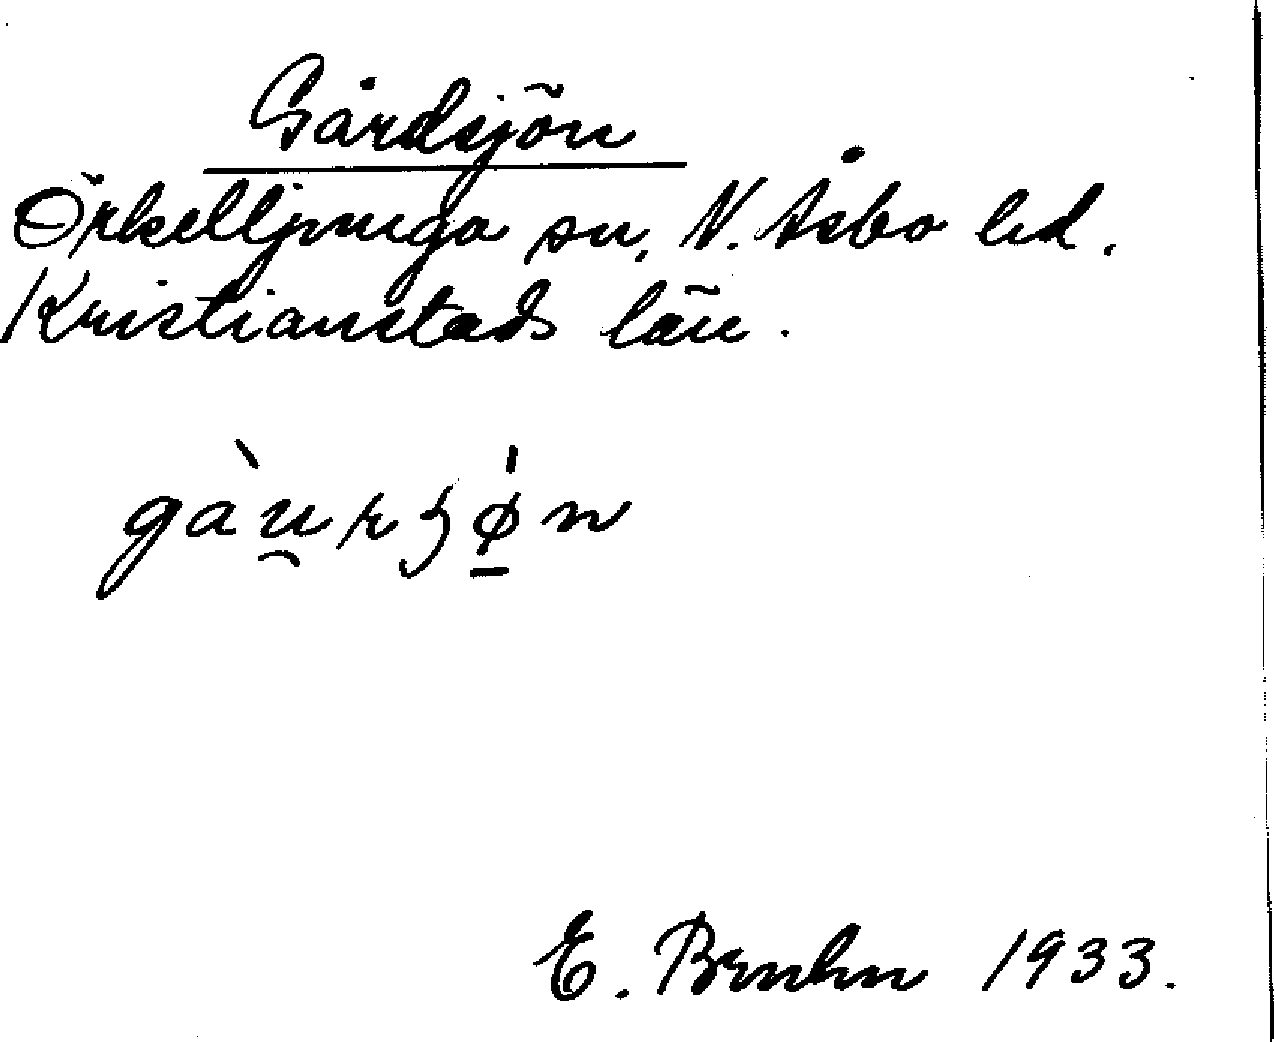 Gårdsjön
Örkelljunga sn, N. Åsbo hd.
Kristianstads län.
gàu̯rʂǿ̱n
E. Bruhn 1933.